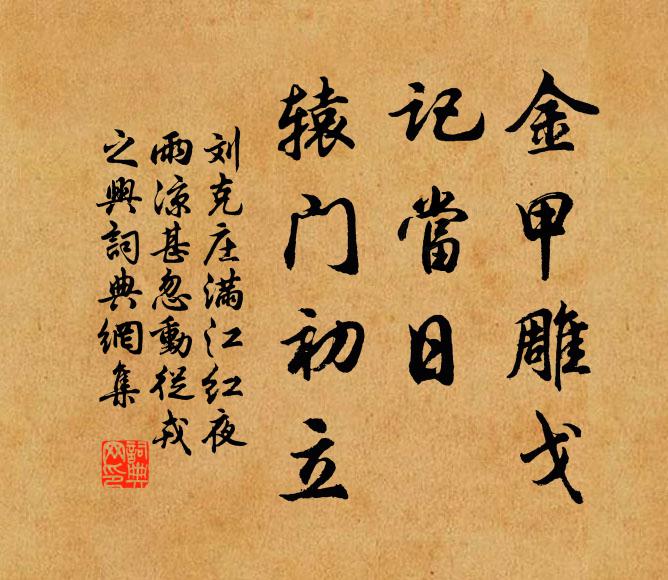 金甲雕戈
记當日
辕门初立
刘克庄满江红夜
雨凉甚忽動從戎
之興詞典網集
詞典
网印